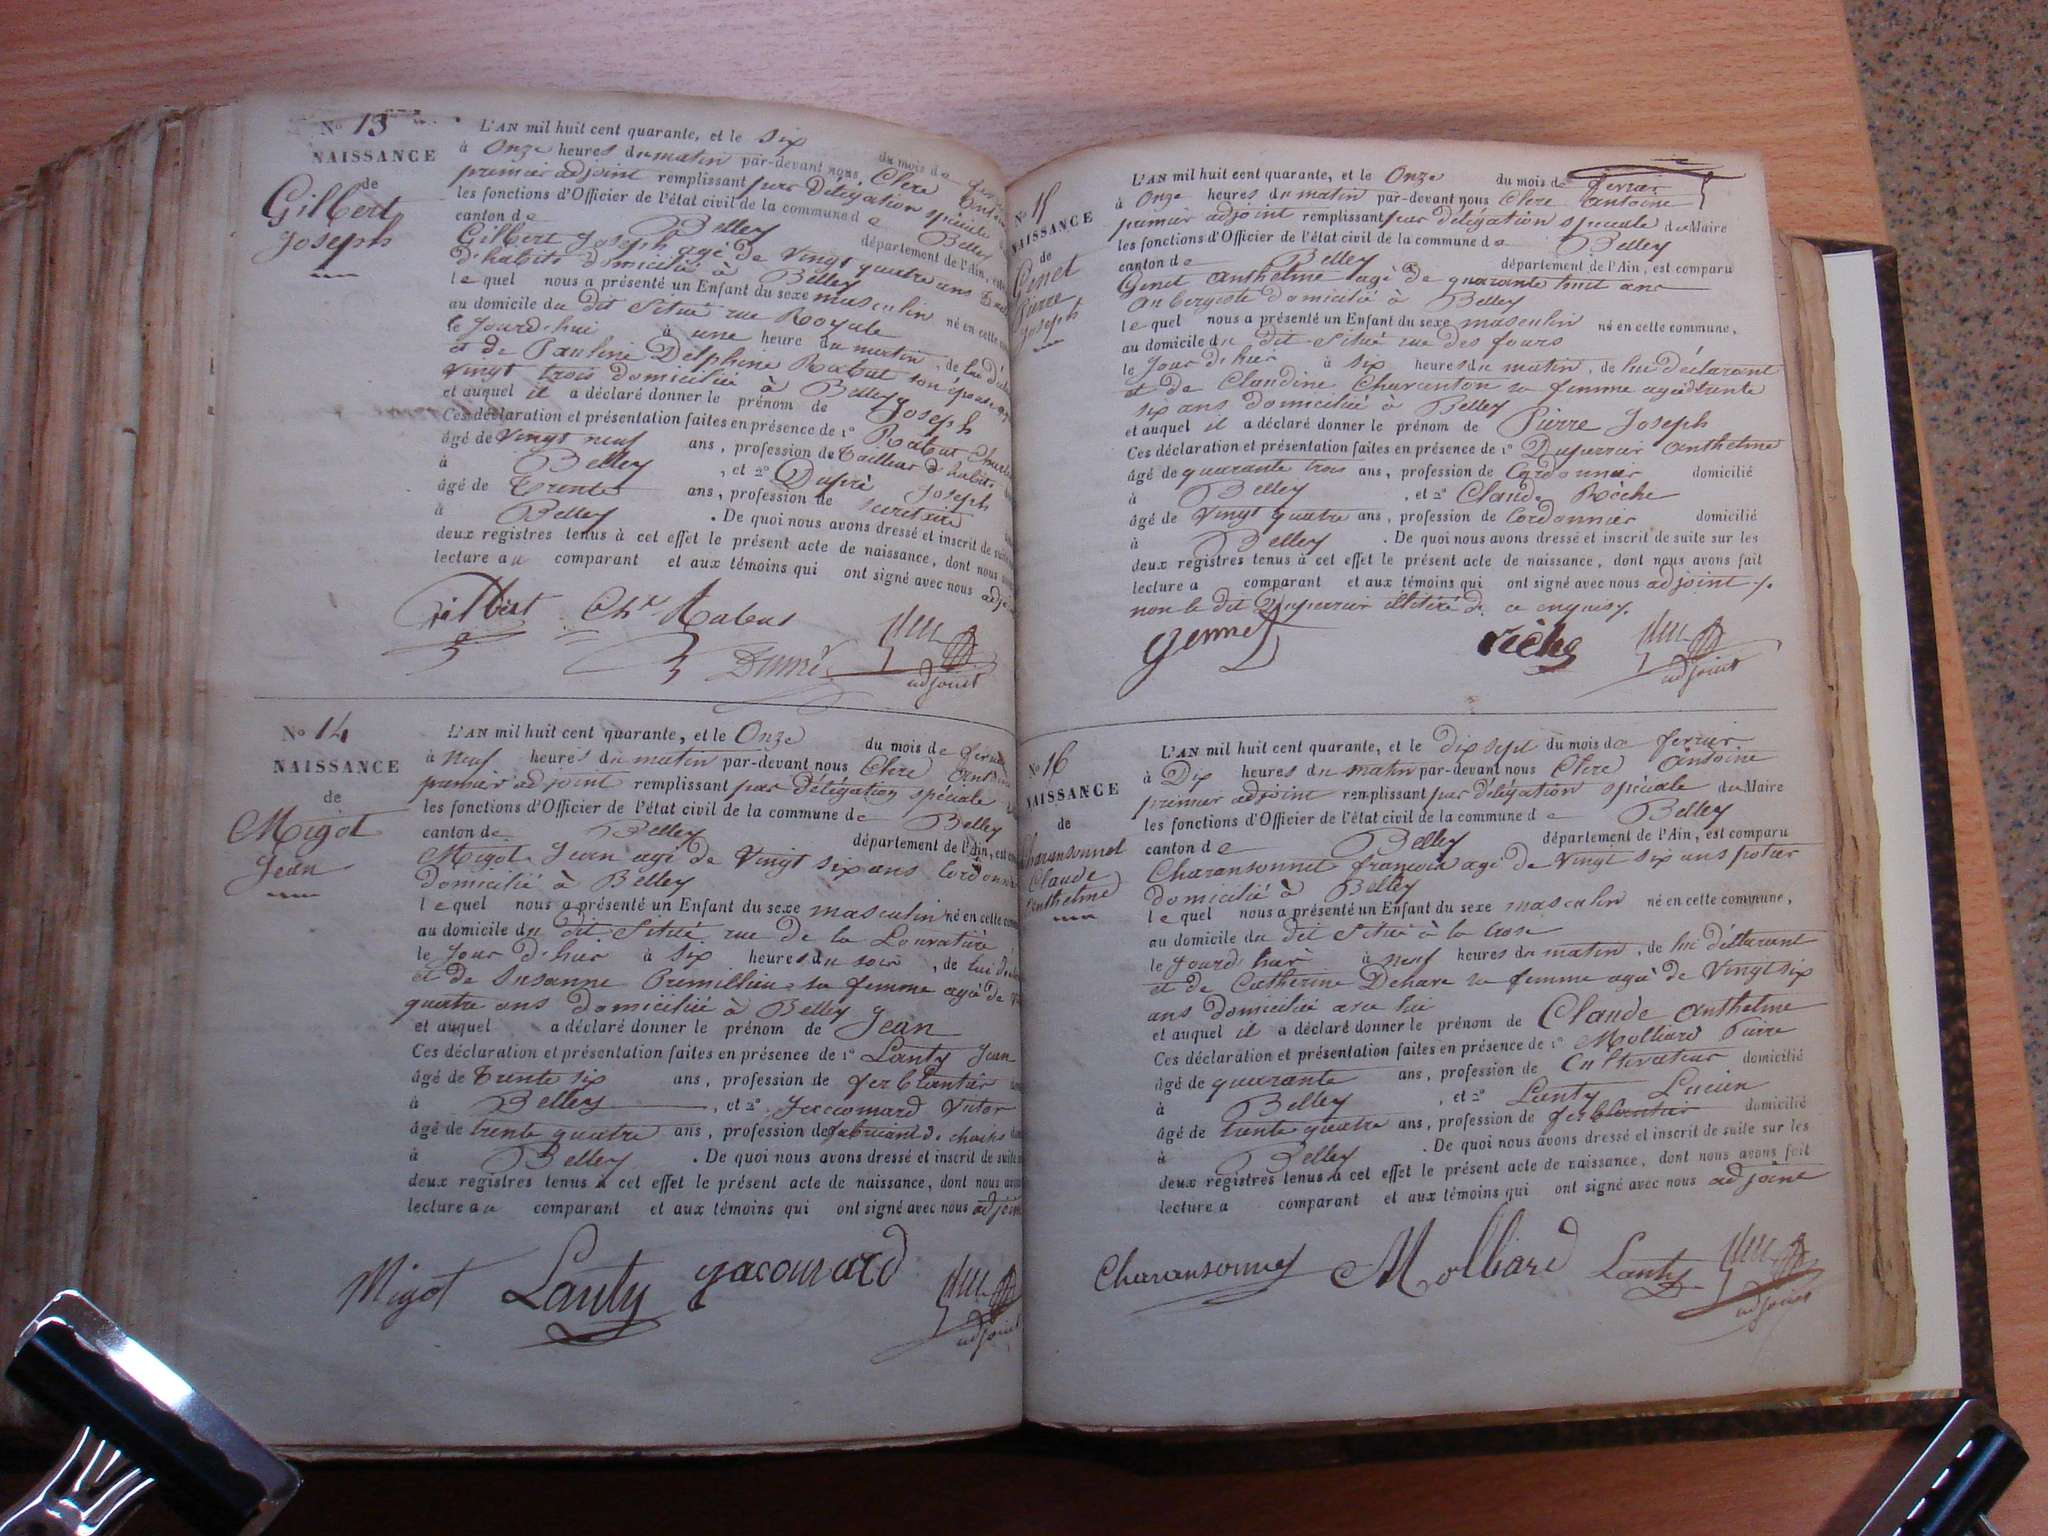 No 13
NAISSANCE
de
Gilbert
Joseph
L'AN mil huit cent quarante, et le six du mois de
à Onze heures du matin par-devant nous Clerc
premier adjoint remplissant par délégation spéciale
les fonctions d'Officier de l'état civil de la commune de Belley
canton de Belley département de l'Ain,
Gilbert Joseph agé de Vingt quatre ans
d'habits domicilié à Belley
lequel nous a présenté un Enfant du sexe masculin né en cette
au domicile du dit Situé rue Royale
le Jourd'hui à une heure du matin, de lui
et de Pauline Delphine Rabut son épouse
Vingt trois domiciliée à Belley
et auquel il a déclaré donner le prénom de Joseph
Ces déclaration et présentation faites en présence de 1º Rabut Charles
âgé de Vingt neuf ans, profession de Tailleur d'habits
à Belley, et 2º Dupré Joseph
âgé de Trente ans, profession de Secretaire
à Belley. De quoi nous avons dressé et inscrit de suite
deux registres tenus à cet effet le présent acte de naissance, dont nous
lecture au comparant et aux témoins qui ont signé avec nous
Gilbert Ch Rabut
adjoint
No 14
NAISSANCE
de
Migot
Jean
L'AN mil huit cent quarante, et le Onze du mois de
à Neuf heures du matin par-devant nous Clerc
premier adjoint remplissant par délégation spéciale
les fonctions d'Officier de l'état civil de la commune de Belley
canton de Belley département de l'Ain,
Migot Jean agé de Vingt six ans
domicilié à Belley
lequel nous a présenté un Enfant du sexe masculin né en cette
au domicile du dit Situé rue de la
le Jour d'hier à six heures du soir, de lui
et de Susanne Premillieu sa femme agée de
quatre ans domiciliée à Belley
et auquel a déclaré donner le prénom de Jean
Ces déclaration et présentation faites en présence de 1º Lanty Jean
âgé de Trente six ans, profession de ferblantier
à Belley, et 2º Jaccomard Victor
âgé de trente quatre ans, profession de fabricant de
à Belley. De quoi nous avons dressé et inscrit de suite
deux registres tenus à cet effet le présent acte de naissance, dont nous
lecture au comparant et aux témoins qui ont signé avec nous
Migot Lanty Jacomard
adjoint
No 15
NAISSANCE
de
Genet
Pierre
Joseph
L'AN mil huit cent quarante, et le Onze du mois de fevrier
à Onze heures du matin par-devant nous Clerc Antoine
premier adjoint remplissant par délégation spéciale du Maire
les fonctions d'Officier de l'état civil de la commune de Belley
canton de Belley département de l'Ain, est comparu
Genet Anthelme agé de quarante huit ans
Aubergiste domicilié à Belley
lequel nous a présenté un Enfant du sexe masculin né en cette commune,
au domicile du dit Situé rue des fours
le Jour d'hier à six heures du matin, de lui déclarant
et de Claudine Charenton sa femme agée de trente
six ans domiciliée à Belley
et auquel il a déclaré donner le prénom de Pierre Joseph
Ces déclaration et présentation faites en présence de 1º Duperrier Anthelme
âgé de quarante trois ans, profession de Cordonnier domicilié
à Belley, et 2º Claude Rèche
âgé de Vingt quatre ans, profession de Cordonnier domicilié
à Belley. De quoi nous avons dressé et inscrit de suite sur les
deux registres tenus à cet effet le présent acte de naissance, dont nous avons fait
lecture a comparant et aux témoins qui ont signé avec nous adjoint
non le dit Duperrier illitéré de ce enquis
Gennet
adjoint
No 16
NAISSANCE
de
Charansonnet
Claude
Anthelme
L'AN mil huit cent quarante, et le dix sept du mois de fevrier
à Dix heures du matin par-devant nous Clerc Antoine
premier adjoint remplissant par délégation spéciale du Maire
les fonctions d'Officier de l'état civil de la commune de Belley
canton de Belley département de l'Ain, est comparu
Charansonnet françois agé de Vingt six ans potier
domicilié à Belley
lequel nous a présenté un Enfant du sexe masculin né en cette commune,
au domicile du dit Situé à la
le Jourd'hier à neuf heures du matin, de lui déclarant
et de Catherine Dehare sa femme agée de Vingt six
ans domiciliée avec lui
et auquel il a déclaré donner le prénom de Claude Anthelme
Ces déclaration et présentation faites en présence de 1º Molliard Pierre
âgé de quarante ans, profession de Cultivateur domicilié
à Belley, et 2º Lanty Lucien
âgé de trente quatre ans, profession de ferblantier domicilié
à Belley. De quoi nous avons dressé et inscrit de suite sur les
deux registres tenus à cet effet le présent acte de naissance, dont nous avons fait
lecture a comparant et aux témoins qui ont signé avec nous adjoint
Charansonnet Molliard Lanty
adjoint